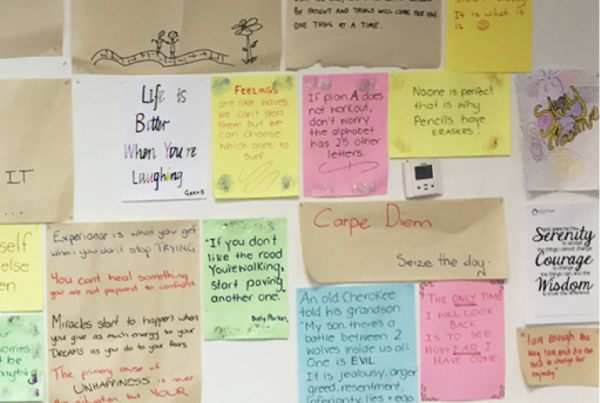 BE PATIENT AND THINGS WILL COME FOR YOU
ONE THING AT A TIME.
It is what it
is
Life is
Better
When You're
Laughing
FEELINGS
are like waves,
we can't stop
them but we
can choose
which ones to
surf
If plan A does
not workout,
don't worry
the alphabet
has 25 other
letters.
Noone is perfect
that is why
Pencils have
ERASERS!
IT
...
Experiance is what you get
when you don't stop TRYING
You cant heal something
you are not prepared to confront
Miracles start to happen when
you give as much energy to your
Dreams as you do to your fears
The primary cause of
UNHAPPINESS is never
the situation but YOUR
"If you don't
like the road
You're walking,
start paving
another one."
Dolly Parton.
Carpe Diem
Seize the day.
An old Cherokee
told his grandson
"My son, there's a
battle between 2
wolves inside us all.
One is EVIL
It is jealousy, anger
greed, resentment,
inferiority lies + ego
The ONLY TIME
I WILL LOOK
BACK
IS TO SEE
HOW FAR I
HAVE COME.
Serenity
to accept
the things I cannot change
Courage
to change
the things I can and
Wisdom
to know the difference
"I am enough the
way I am and do not
need to change for
anybody"
self
else
en
worries
t be
anything